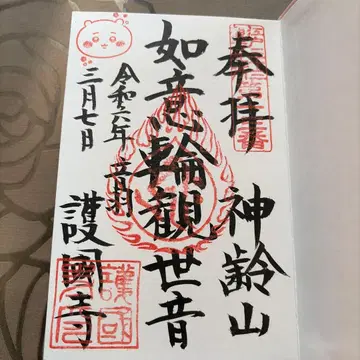 奉拝 神齢山
如意輪観世音
令和六年 音羽 護國寺
三月七日
護國寺